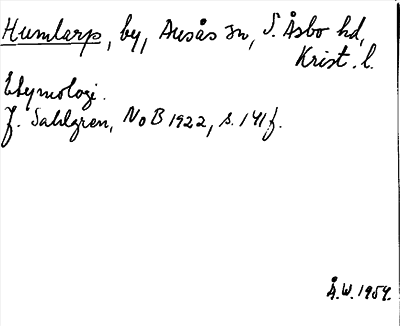 Humlarp, by, Ausås sn, S. Åsbo hd,
Krist. l.
Etymologi.
J. Sahlgren, NoB 1922, s. 141 f.
Å.W. 1954.